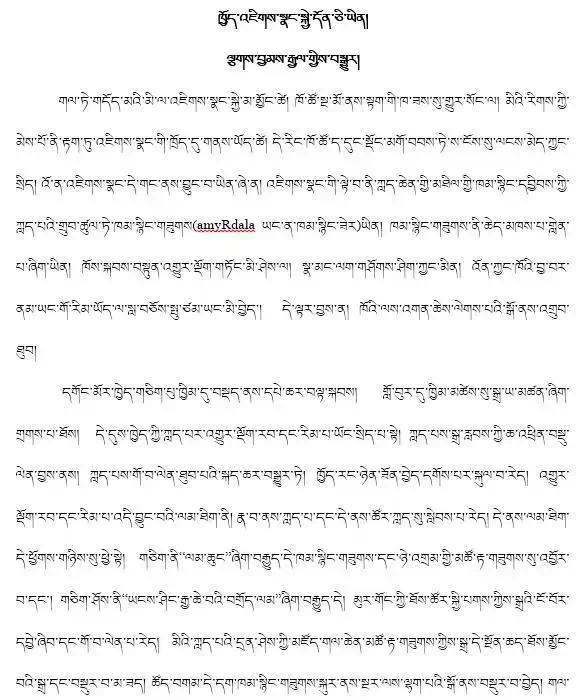 ཁྱོད་འཇིགས་སྣང་སྐྱེ་དོན་ཅི་ཡིན།
ལྕགས་བྱམས་རྒྱལ་གྱིས་བསྒྱུར།
གལ་ཏེ་གདོད་མའི་མི་ལ་འཇིགས་སྣང་སྐྱེ་མ་མྱོང་ཚེ། ཁོ་ཚོ་སྔ་མོ་ནས་སྟག་གི་ཁ་ཟས་སུ་གྱུར་སོང་ལ། མིའི་རིགས་ཀྱི་
མེས་པོ་ནི་རྟག་ཏུ་འཇིགས་སྣང་གི་ཁྲོད་དུ་གནས་ཡོད་ཚེ། དེ་རིང་ཁོ་ཚོ་ད་དུང་སྡོང་མགོ་བབས་ཏེ་ས་ངོས་སུ་ལངས་མེད་ཀྱང་
སྲིད། འོ་ན་འཇིགས་སྣང་དེ་གང་ནས་བྱུང་བ་ཡིན་ཞེ་ན། འཇིགས་སྣང་གི་ལྟེ་བ་ནི་ཀླད་ཆེན་གྱི་མཐིལ་གྱི་ཁམ་སྙིང་དབྱིབས་ཀྱི་
ཀླད་པའི་གྲུབ་ཚུལ་ཏེ་ཁམ་སྙིང་གཟུགས(amyRdala ཡང་ན་ཁམ་སྙིང་ཟེར)ཡིན། ཁམ་སྙིང་གཟུགས་ནི་ཆེད་མཁས་པ་གླེན་
པ་ཞིག་ཡིན། ཁོས་སྐབས་བསྟུན་འགྱུར་ལྡོག་གཏོང་མི་ཤེས་ལ། སྣ་མང་ལག་གཤོགས་ཤིག་ཀྱང་མིན། འོན་ཀྱང་ཁོའི་བྱ་བར་
ནམ་ཡང་གོ་རིམ་ཡོད་ལ་སླ་བཅོས་སྤུ་ཙམ་ཡང་མི་བྱེད། དེ་ལྟར་བྱས་ན། ཁོའི་ལས་འགན་ཆེས་ལེགས་པའི་སྒོ་ནས་འགྲུབ་
ཐུབ།
དགོང་མོར་ཁྱེད་གཅིག་པུ་ཁྱིམ་དུ་བསྡད་ནས་དཔེ་ཆར་བལྟ་སྐབས། གློ་བུར་དུ་ཁྱིམ་མཚེས་སུ་སྒྲ་ཡ་མཚན་ཞིག་
གྲགས་པ་ཐོས། དེ་དུས་ཁྱེད་ཀྱི་ཀླད་པར་འགྱུར་ལྡོག་རབ་དང་རིམ་པ་ཡོང་སྲིད་པ་སྟེ། ཀླད་པས་སྒྲ་རླབས་ཀྱི་ཆ་འཕྲིན་བསྡུ་
ལེན་བྱས་ནས། ཀླད་པས་གོ་བ་ལེན་ཐུབ་པའི་སྐད་ཆར་བསྒྱུར་ཏེ། ཁྱོད་རང་ཉེན་ཟོན་བྱེད་དགོས་པར་སྐུལ་བ་རེད། འགྱུར་
ལྡོག་རབ་དང་རིམ་པ་འདི་བྱུང་བའི་ལམ་ཐིག་ནི། རྣ་བ་ནས་ཀླད་པ་དང་དེ་ནས་ཚོར་ཀླད་སུ་སླེབས་པ་རེད། དེ་ནས་ལམ་ཐིག་
དེ་ཕྱོགས་གཉིས་སུ་ཕྱེ་སྟེ། གཅིག་ནི“ལམ་ཆུང”ཞིག་བརྒྱུད་དེ་ཁམ་སྙིང་གཟུགས་དང་ཉེ་འགྲམ་གྱི་མཚོ་རྟ་གཟུགས་སུ་འབྱོར་
བ་དང་། གཅིག་ཤོས་ནི“ཡངས་ཤིང་རྒྱ་ཆེ་བའི་བགྲོད་ལམ”ཞིག་བརྒྱུད་དེ། མུར་གོང་གི་ཐོས་ཚོར་སྐྱི་པགས་ཀྱིས་སྒྲའི་ངོ་བོར་
དབྱེ་ཞིབ་དང་གོ་བ་ལེན་པ་རེད། མིའི་ཀླད་པའི་དྲན་ཤེས་ཀྱི་མཛོད་གལ་ཆེན་མཚོ་རྟ་གཟུགས་ཀྱིས་སྒྲ་དེ་སྔོན་ཆད་ཐོས་མྱོང་
བའི་སྒྲ་དང་བསྡུར་བ་མ་ཟད། ཚོད་བགམ་དེ་དག་ཁམ་སྙིང་གཟུགས་སྐུར་ནས་སྔར་ལས་ལྷག་པའི་སྒོ་ནས་བསྡུར་བ་བྱེད། གལ་